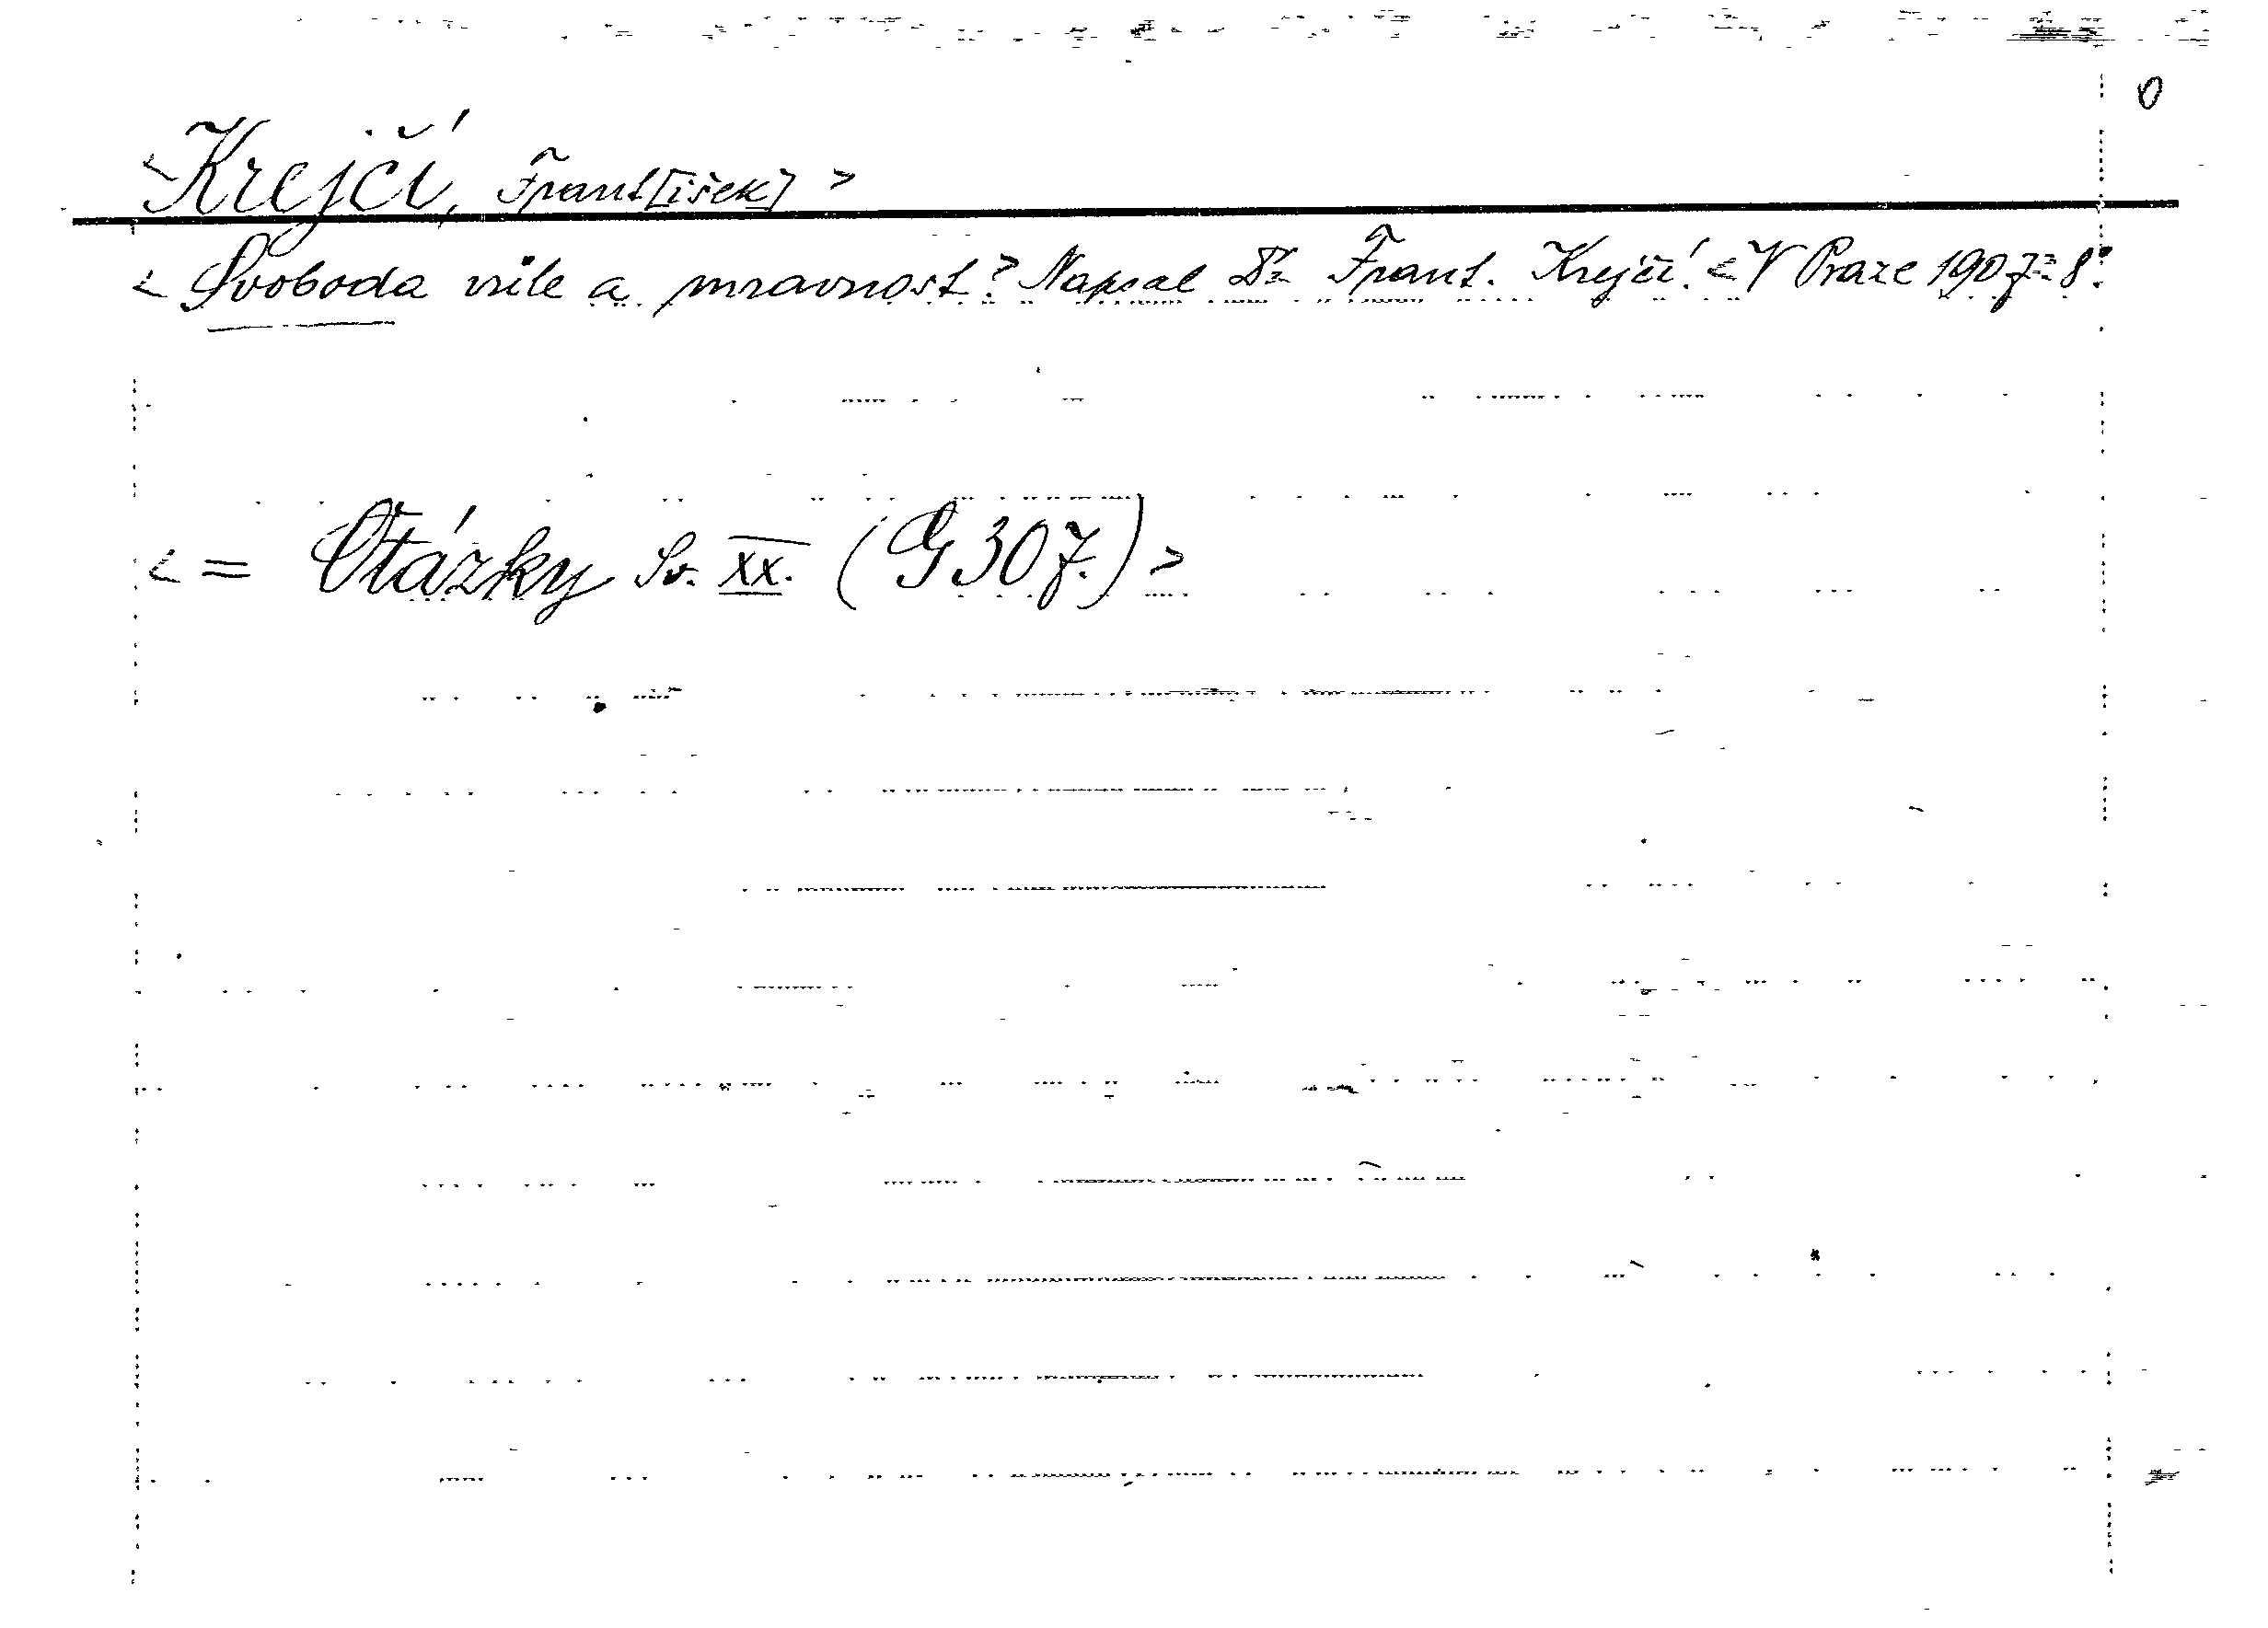 0
<Krejčí, Frant[išek]>
<Svoboda vůle a mravnost> Napsal Dr. Frant. Krejčí. <V Praze 1907> 8°.
<= Otázky Sv. XX. (G 307.)>